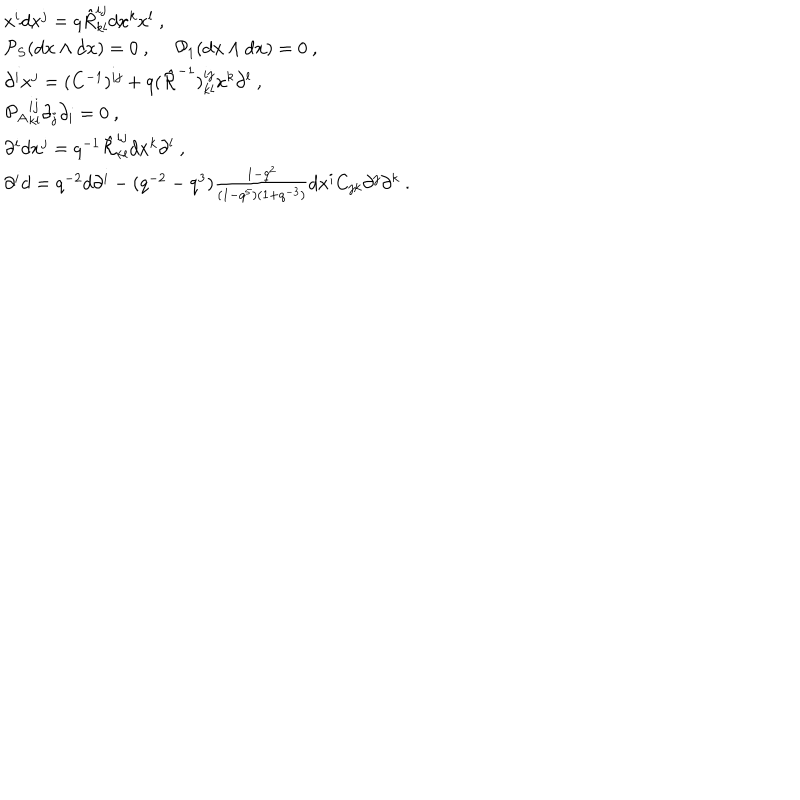 x^i dx^j = q\hat{R}^{ij}_{kl} dx^k x^l ,
\mathcal{P}_S(dx \wedge dx) = 0 , \mathcal{P}_1(dx \wedge dx) = 0 ,
\partial^i x^j = (C^{-1})^{ij} + q(\hat{R}^{-1})^{ij}_{kl} x^k \partial^l ,
\mathcal{P}_A{}^{ij}_{kl} \partial_j \partial_i = 0 ,
\partial^i dx^j = q^{-1} \hat{R}^{ij}_{kl} dx^k \partial^l ,
\partial^i d = q^{-2} d\partial^i - (q^{-2} - q^3) \frac{1-q^2}{(1-q^5)(1+q^{-3})} dx^i C_{jk} \partial^j \partial^k .